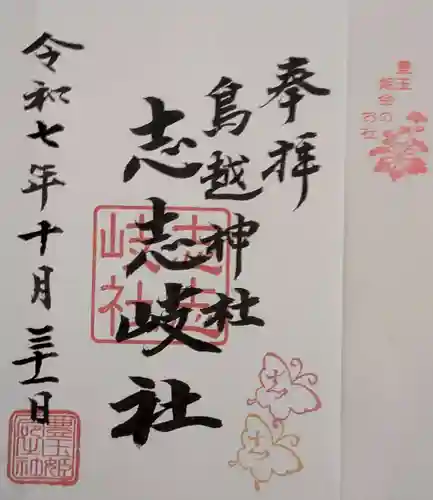 豊玉
姫命の
お社
奉拝
鳥越神社
志志岐社
志志
岐社
令和七年十月三十一日
豊玉姫